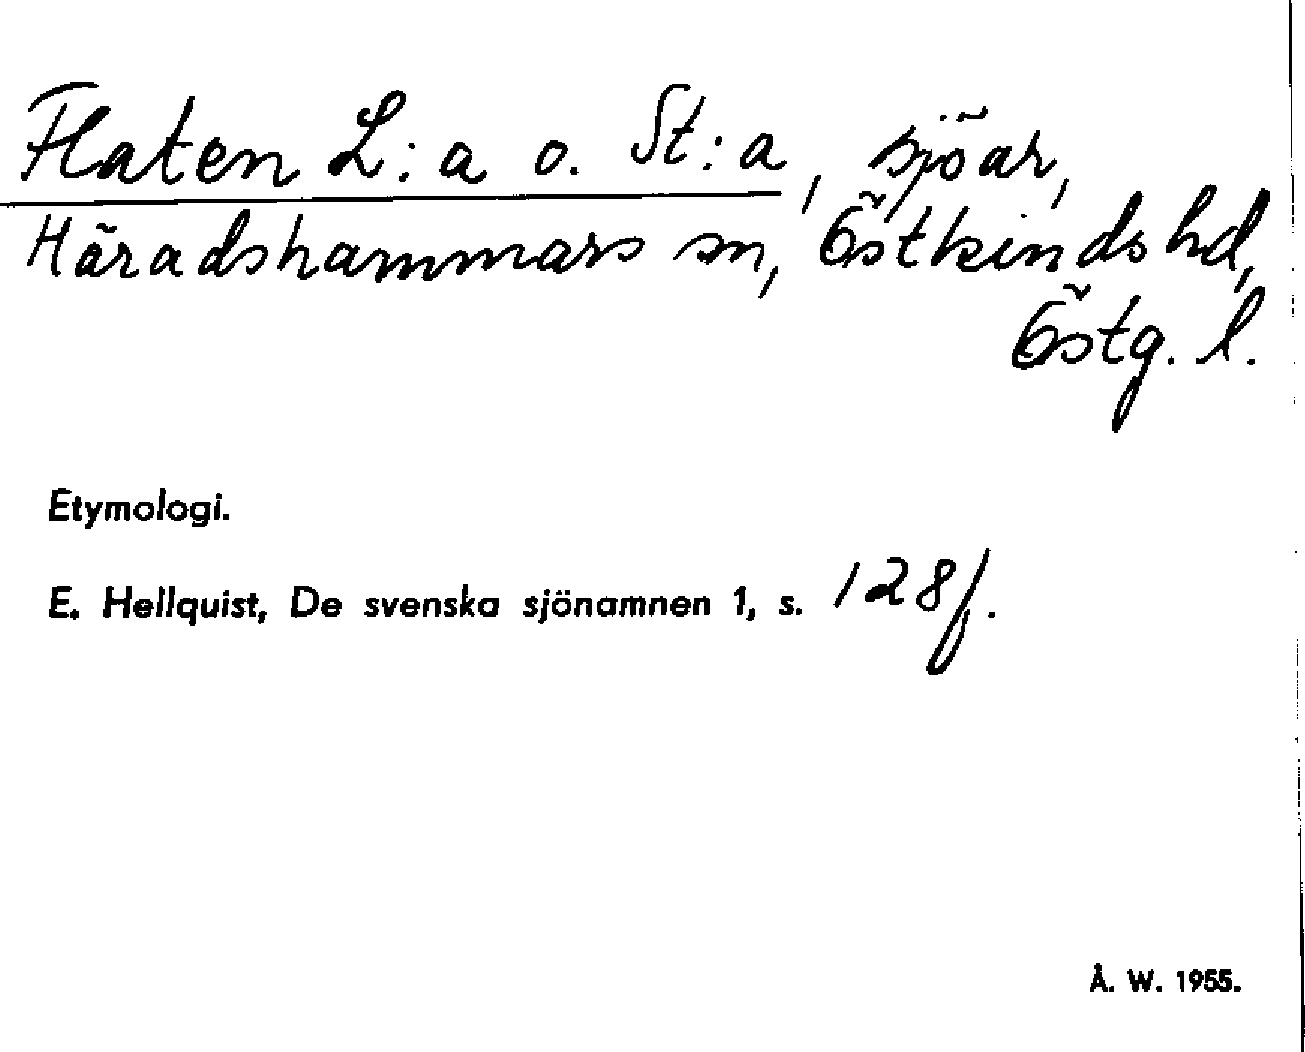 Flaten L:a o. St:a, sjöar,
Häradshammars sn, Östkinds hd,
Östg. l.
Etymologi.
E. Hellquist, De svenska sjönamnen 1, s. 128f.
Å. W. 1955.